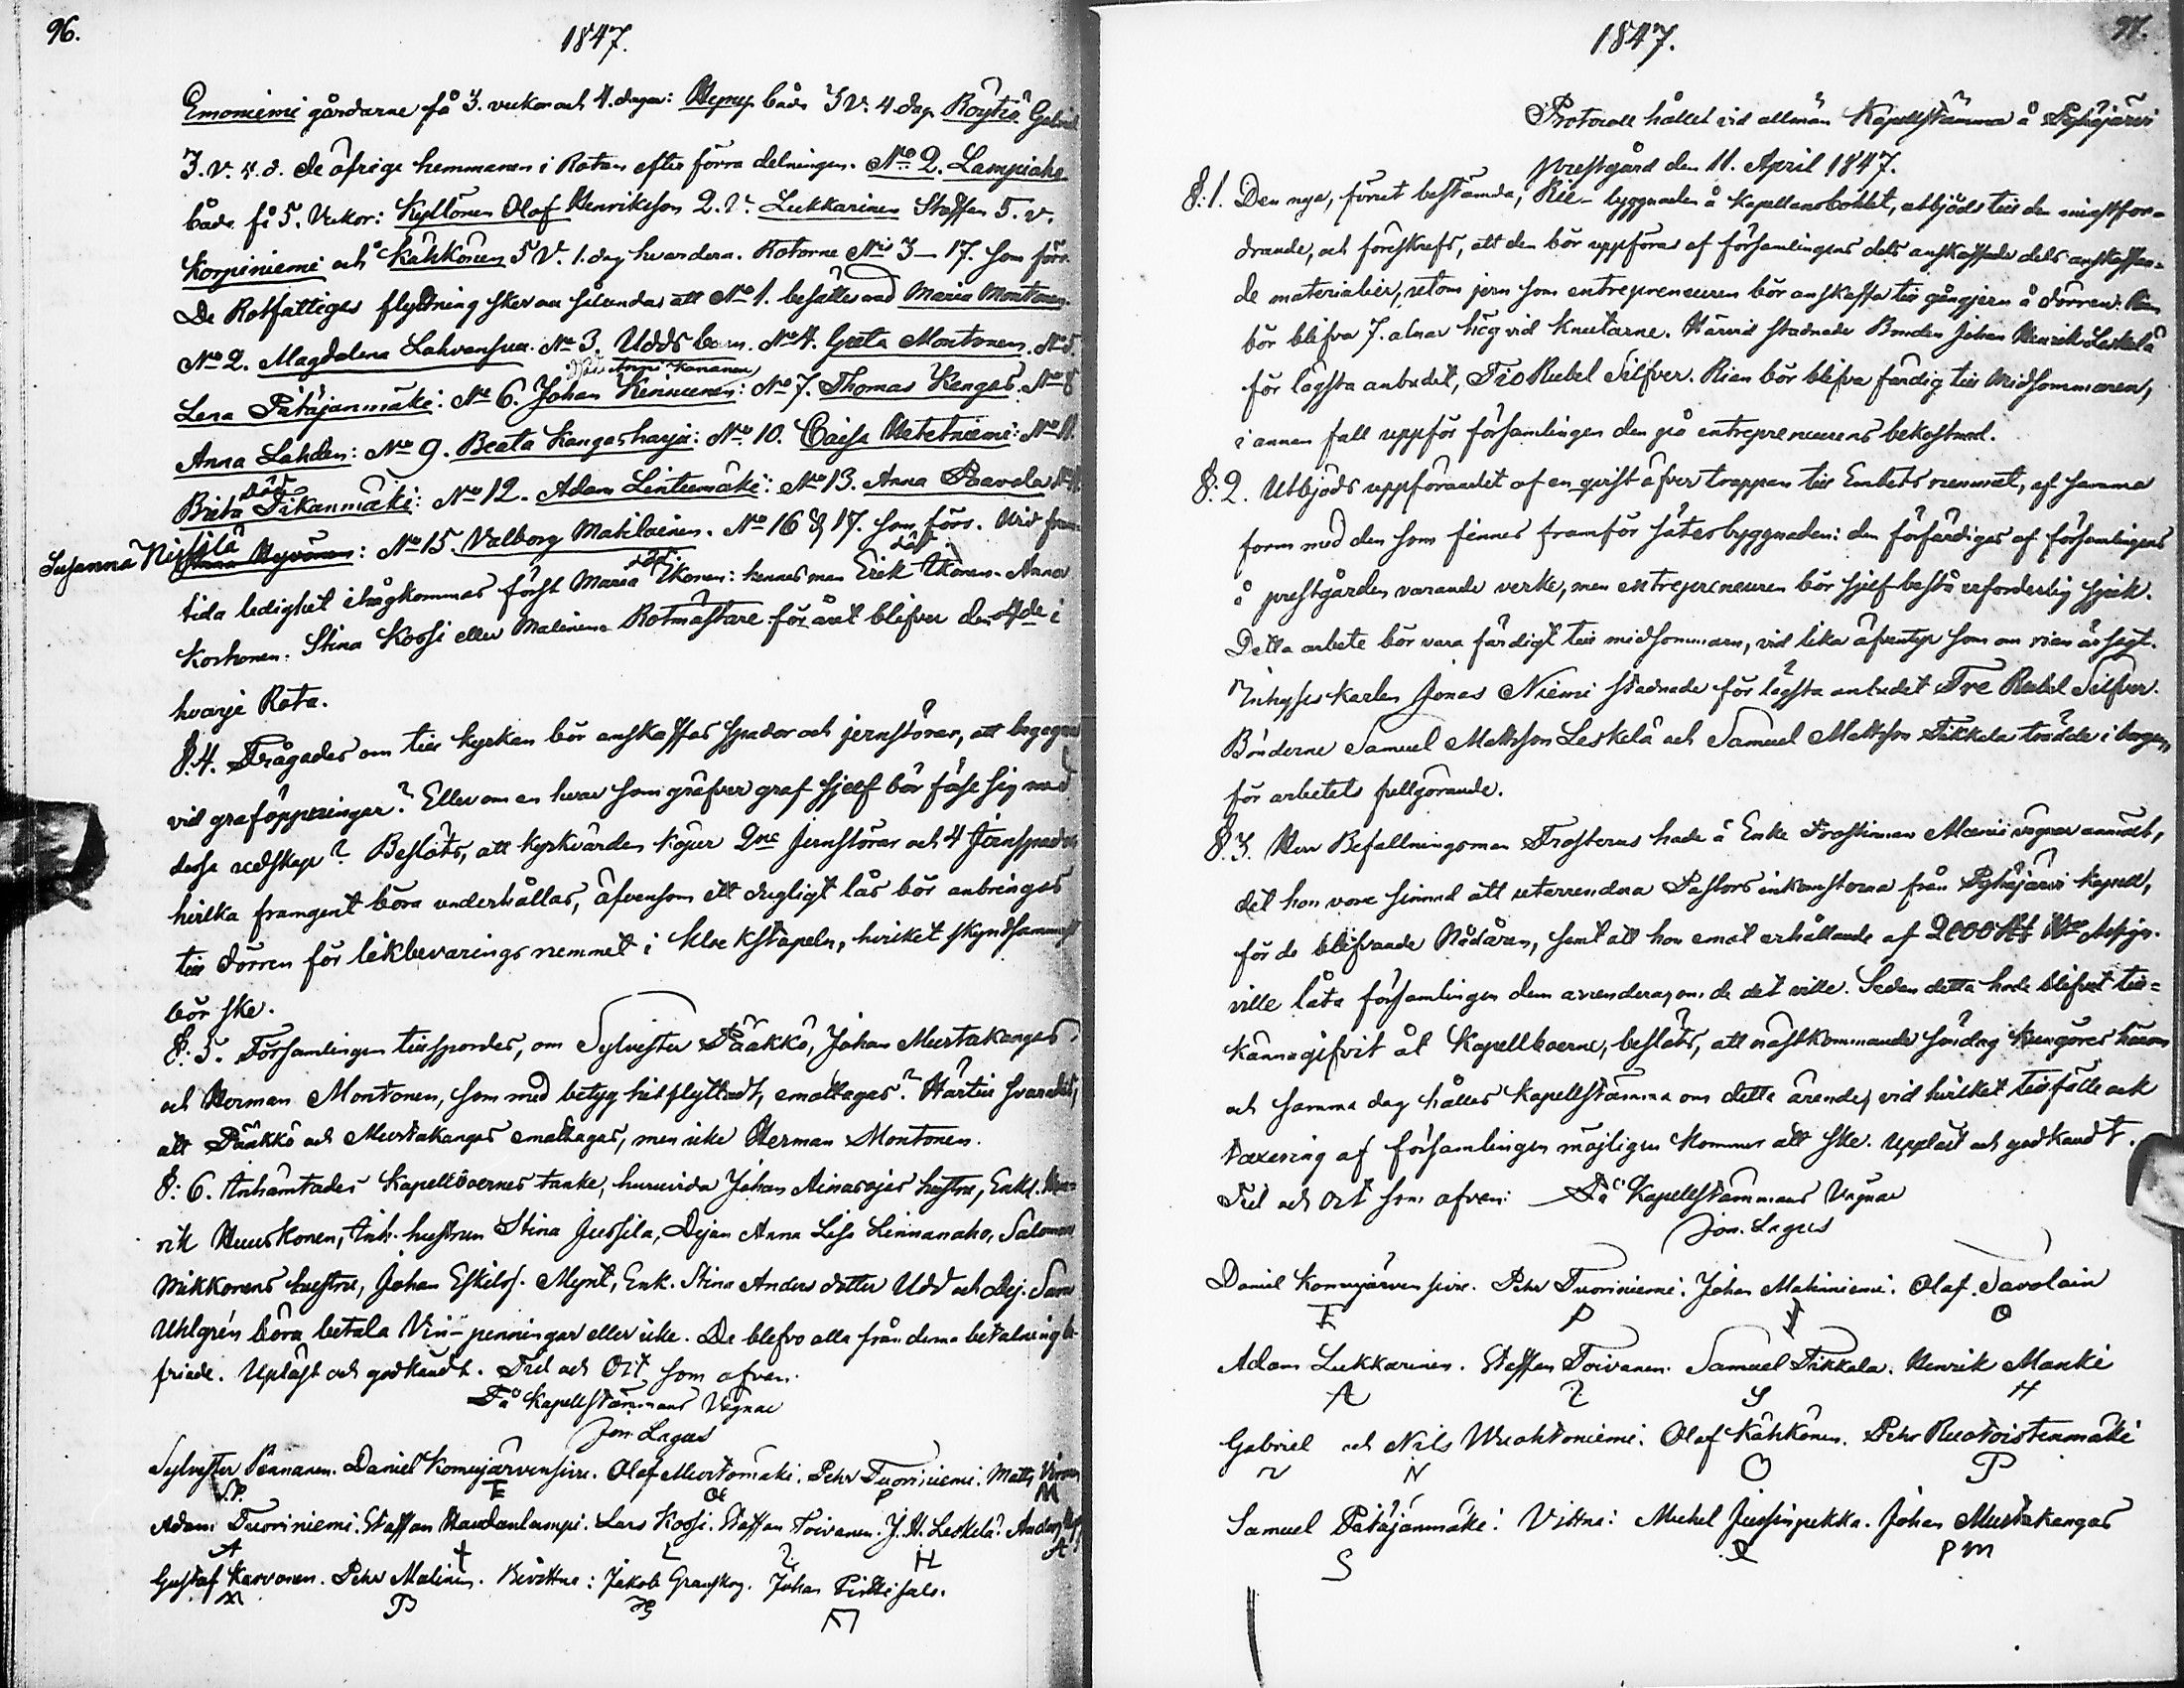 96.
1847.
Emoniemi gårdarne få 3. veckor och 4. dagar: båda 3 V. 4. dag. Röytiä Gabriel
3. v. 4. d. de öfrige hemmanen i Rotan efter förra delningen. No 2. Lampiaho
båda få 5. Vekor: Kyllönen Olof Henriksson 2. V. Lukkarinen Staffan 5. v.
Korpiniemi och Kähkönen 5 V. 1. dag hvardera. Rotorne No 3 – 17. som förr.
De Rotfattiges flyttning sker nu sålunda, att No 1. besättes med Maria Montonen.
No 2. Magdalena Lahvensuu. No 3. Udds barn. No 4. Greta Montonen. No 5.
Lena Pätäjänmäki: No 6. Johan Kinnunen: No 7. Thomas Kangas. No 8
Anna Lahden: No 9. Beata Kangasharju: No 10. Caisa Hetetniemi: No 11.
död
Brita Tikanmäki: No 12. Adam Lintumäki: No 13. Anna Paavola
Susanna Nissilä Hyvönen: No 15. Valborg Matilainen. No 16 & 17. som förr. Vid fram-
tida ledighet ihågkommas först Maria Ikonen: hennes man Erik Ikonen. Anna
Korhonen. Stina Koosi eller Malinen. Rotmästare för året blifver den 4de i
hvarje Rota.
§. 4. Frågades om till kyrkan bör anskaffas spador och jernstörar, att begagnas
vid graföppningar? Eller om en hvar som gräfver graf sjelf bör föse sig med
dessa redskap? Beslöts, att kyrkvärden köper 2ne Jernstörar och 4 Jernspador
hvilka framgent böra underhållas, äfvensom ett dugligt lås bör anbringas
till dörren för likbevarings rummet i Klockstapeln, hvilket skyndsammast
bör ske.
§. 5. Församlingen tillspordes, om Sylvester Pääkkö, Johan Mustakangas,
och Herman Montonen, som med betyg hitflyttadt, emottagas? Härtill svarades,
att Pääkkö och Mustakangas emottagas, men icke Herman Montonen.
§. 6. Inhämtades Kapellboernes tanke, huruvida Johan Ainasojas hustru, Enkl. Hen-
rik Huuskonen, Inh. hustrun Stina Jussila, Pigan Anna Lisa Linnanaho, Salomon
Mikkonens hustru, Johan Eskilss. Mynt, Enk. Stina Anders dotter Udd och Pig. Sara
Uhlgrén böra betala Vin-penningar eller icke. De blefvo alla från denna betalning be-
friade. Upläst och godkändt. Tid och Ort som ofvan.
På Kapellstämmans Vägnar
Jon. Lagus
Sylvester Pennanen. Daniel Komujärvensivu. Olof Murtomäki. Pehr Tuoriniemi. Matts
S.P. P M
Adam Tuoriniemi. Staffan Haudanlampi. Lars Koosi. Staffan Toivanen. J. H. Leskelä. Anders
A H A
Gustaf Karvonen. Pehr Malinen. Bevittna: Jakob Granskog. Johan Pirttisalo.
P
97.
1847.
Protocoll hållet vid allmän Kapellstämma å Pyhäjärvi
prestgård den 11. April 1847.
§. 1. Den nya, förut bestämda, Rie-byggnaden å Kapellansbolet, utbjöds till den minstfor-
drande, och föreskrefs, att den bör uppföras af församlingens dels anskaffade dels anskaffan-
de materialier, utom jern som entrepreneuren bör anskaffa till gångjern å dörren. Rien
bör blifva 7. alnar hög vid knutarne. Härvid stadnade Bonden Johan Henrik Leskelä
för lägsta anbudet, Tio Rubel Silfver. Rian bör blifva färdig till Midsommaren,
i annan fall uppför församlingen den på entrepreneurens bekostnad.
§. 2. Utbjöds uppförandet af en qvist öfver trappan till Embets rummet, af samma
form med den som finnes framför sätesbyggnaden: den förfärdigas af församlingens
å prestgården varande virke, men entrepreneuren bör sjelf bestå erforderlig spik.
Detta arbete bör vara färdigt till midsommaren, vid lika äfventyr som om rian är sagt.
Inhyses karlen Jonas Niemi stadnade för lägsta anbudet Tre Rubel Silfver.
Bönderne Samuel Mattsson Leskelä och Samuel Mattsson Tikkala trädde i borgen
för arbetets fullgörande.
§. 3. Herr Befallningsman Frosterus hade å Enke Prostinnan vägnar anmält,
det hon vore sinnad att utarrendera Pastors inkomsterna från Pyhäjärvi kapell,
för de blifvande Nådåren, samt att hon emot erhållande af 2000
ville låta församlingen dem arrendera, om de det ville. Sedan detta hade blifvit till-
kännagifvit åt Kapellboerne, beslöts, att nästkommande söndag kungöres härom
och samma dag hålles Kapellstämma om detta ärende, vid hvilket tillfälle ock
taxering af församlingen möjligen kommer att ske. Upläst och godkändt.
Tid och Ort som ofvan: På Kapellstämmans Vägnar
Jon. Lagus
Daniel Komujärvensivu. Pehr Tuoriniemi. Johan Makiniemi. Olof Savolain
P O
Adam Lukkarinen. Staffan Toivanen. Samuel Tikkala. Henrik Manki
A S H
Gabriel och Nils Wuohtoniemi. Olof Kähkönen. Pehr Ruotoistenmäki
N O P
Samuel Pätäjänmäki. Vittna: Michel Jussinpekka. Johan Mustakangas
S P M